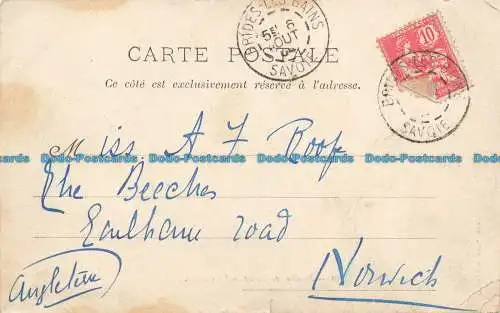 BRIDES-LES-BAINS
5E 6
AOUT
SAVOIE
CARTE POSTALE
Ce côté est exclusivement réservé à l'adresse.
10
SAVOIE
Miss A F Roofe
Dodo-Postcards Dodo-Postcards Dodo-Postcards Dodo-Postcards Dodo-Postcards
The Beeches
Earlham road
Norwich
Angleterre